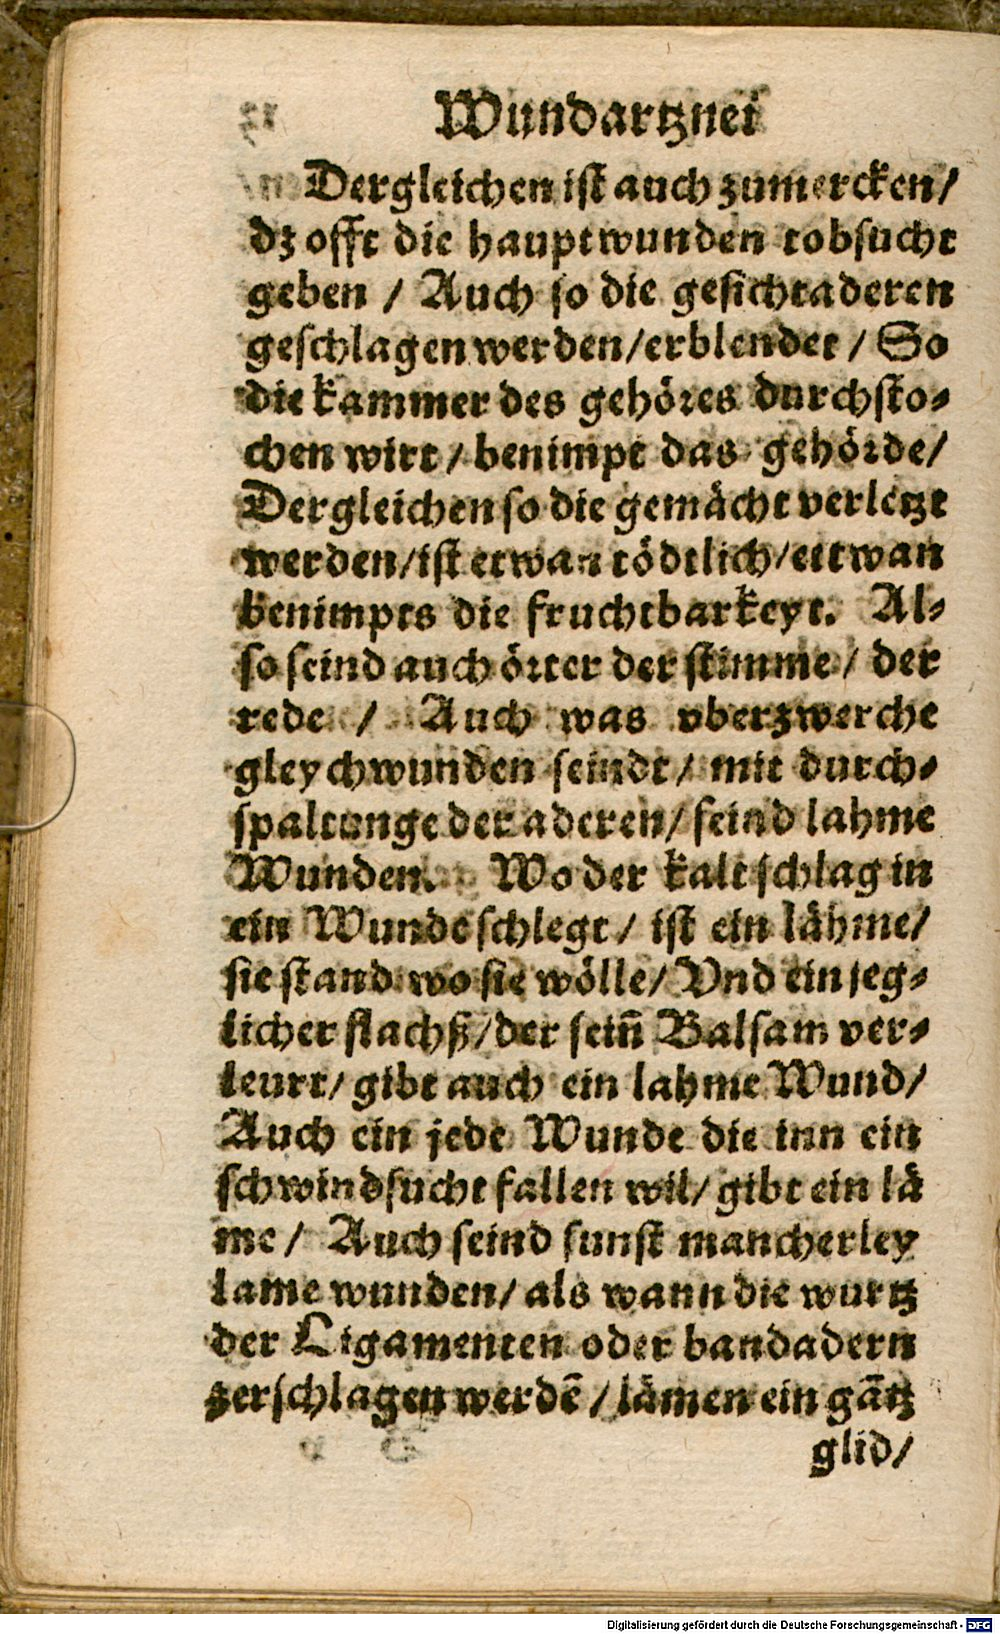 Wundartznei
Dergleichen ist auch zumercken/
dz offt die hauptwunden tobsucht
geben / Auch so die gesichtaderen
geschlagen werden/erblendet / So
die kammer des gehöres durchsto⸗
chen wirt / benimpt das gehörde/
Dergleichen so die gemächt verletzt
werden/ist etwan tödtlich/ettwan
benimpts die fruchtbarkeyt. Al⸗
so seind auch örter der stimme / der
rede / Auch was vberzwerche
gleychwunden seindt / mit durch⸗
spaltunge der aderen/ seind lahme
Wunden. Wo der kalt schlag in
ein Wunde schlegt / ist ein lähme/
sie stand wo sie wölle/ Vnd ein jeg⸗
licher flachß/der sein̄ Balsam ver⸗
leurt/ gibt auch ein lahme Wund/
Auch ein jede Wunde die inn ein
schwindsucht fallen wil/ gibt ein lä
me / Auch seind sunst mancherley
lame wunden/ als wann die wurtz
der Ligamenten oder bandadern
zerschlagen werdē / lämen ein gātz
glid/
Digitalisierung gefördert durch die Deutsche Forschungsgemeinschaft - DFG